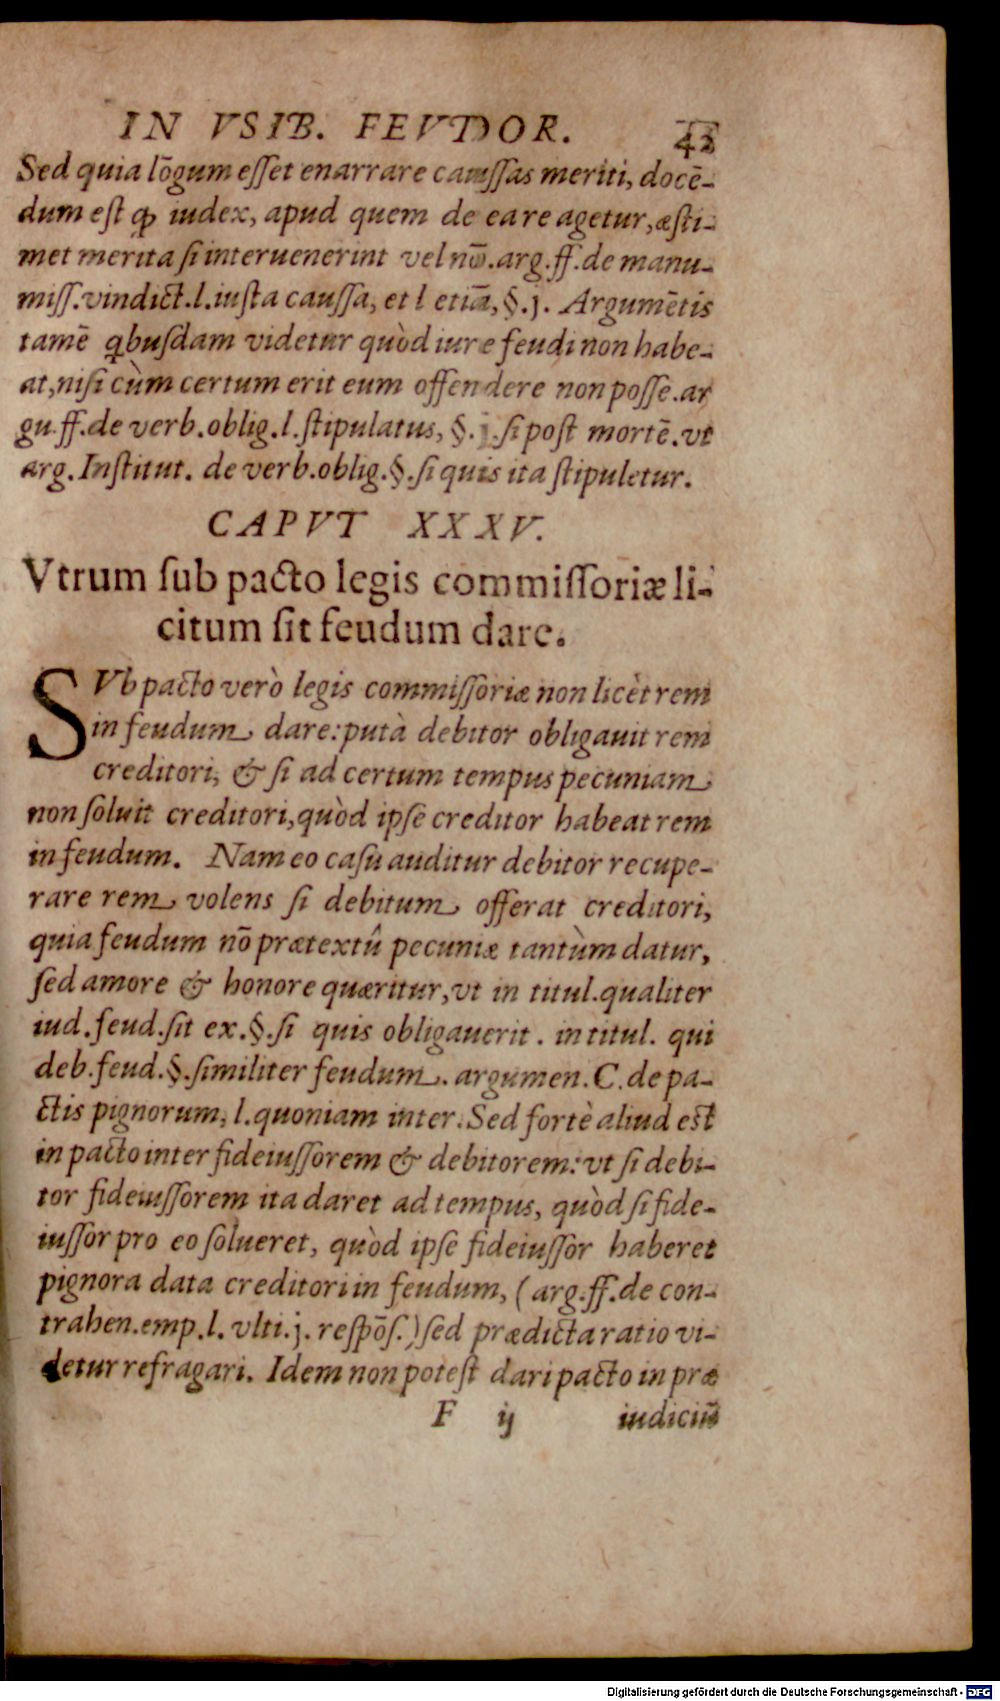 IN VSIB. FEVDOR. 42
Sed quia lōgum esset enarrare caussas meriti, docē-
dum est ꝙ iudex, apud quem de ea re agetur, æsti-
met merita si interuenerint vel nō. arg. ff. de manu-
miss. vindict. l. iusta caussa, et l etiā, §. j. Argumētis
tamē qbusdam videtur quòd iure feudi non habe-
at, nisi cùm certum erit eum offendere non posse. ar
gu. ff. de verb. oblig. l. stipulatus, §. j. si post mortē. vt
arg. Institut. de verb. oblig. §. si quis ita stipuletur.
CAPVT XXXV.
Vtrum sub pacto legis commissoriæ li-
citum sit feudum dare.
SVb pacto verò legis commissoriæ non licèt rem
in feudum dare: putà debitor obligauit rem
creditori, & si ad certum tempus pecuniam
non soluit creditori, quòd ipse creditor habeat rem
in feudum. Nam eo casu auditur debitor recupe-
rare rem volens si debitum offerat creditori,
quia feudum nō prætextû pecuniæ tantùm datur,
sed amore & honore quæritur, vt in titul. qualiter
iud. feud. sit ex. §. si quis obligauerit. in titul. qui
deb. feud. §. similiter feudum. argumen. C. de pa-
ctis pignorum, l. quoniam inter. Sed fortè aliud est
in pacto inter fideiussorem & debitorem: vt si debi-
tor fideiussorem ita daret ad tempus, quòd si fide-
iussor pro eo solueret, quòd ipse fideiussor haberet
pignora data creditori in feudum, (arg. ff. de con-
trahen. emp. l. vlti. j. respōs.) sed prædicta ratio vi-
detur refragari. Idem non potest dari pacto in præ
F ij iudiciū
Digitalisierung gefördert durch die Deutsche Forschungsgemeinschaft - DFG